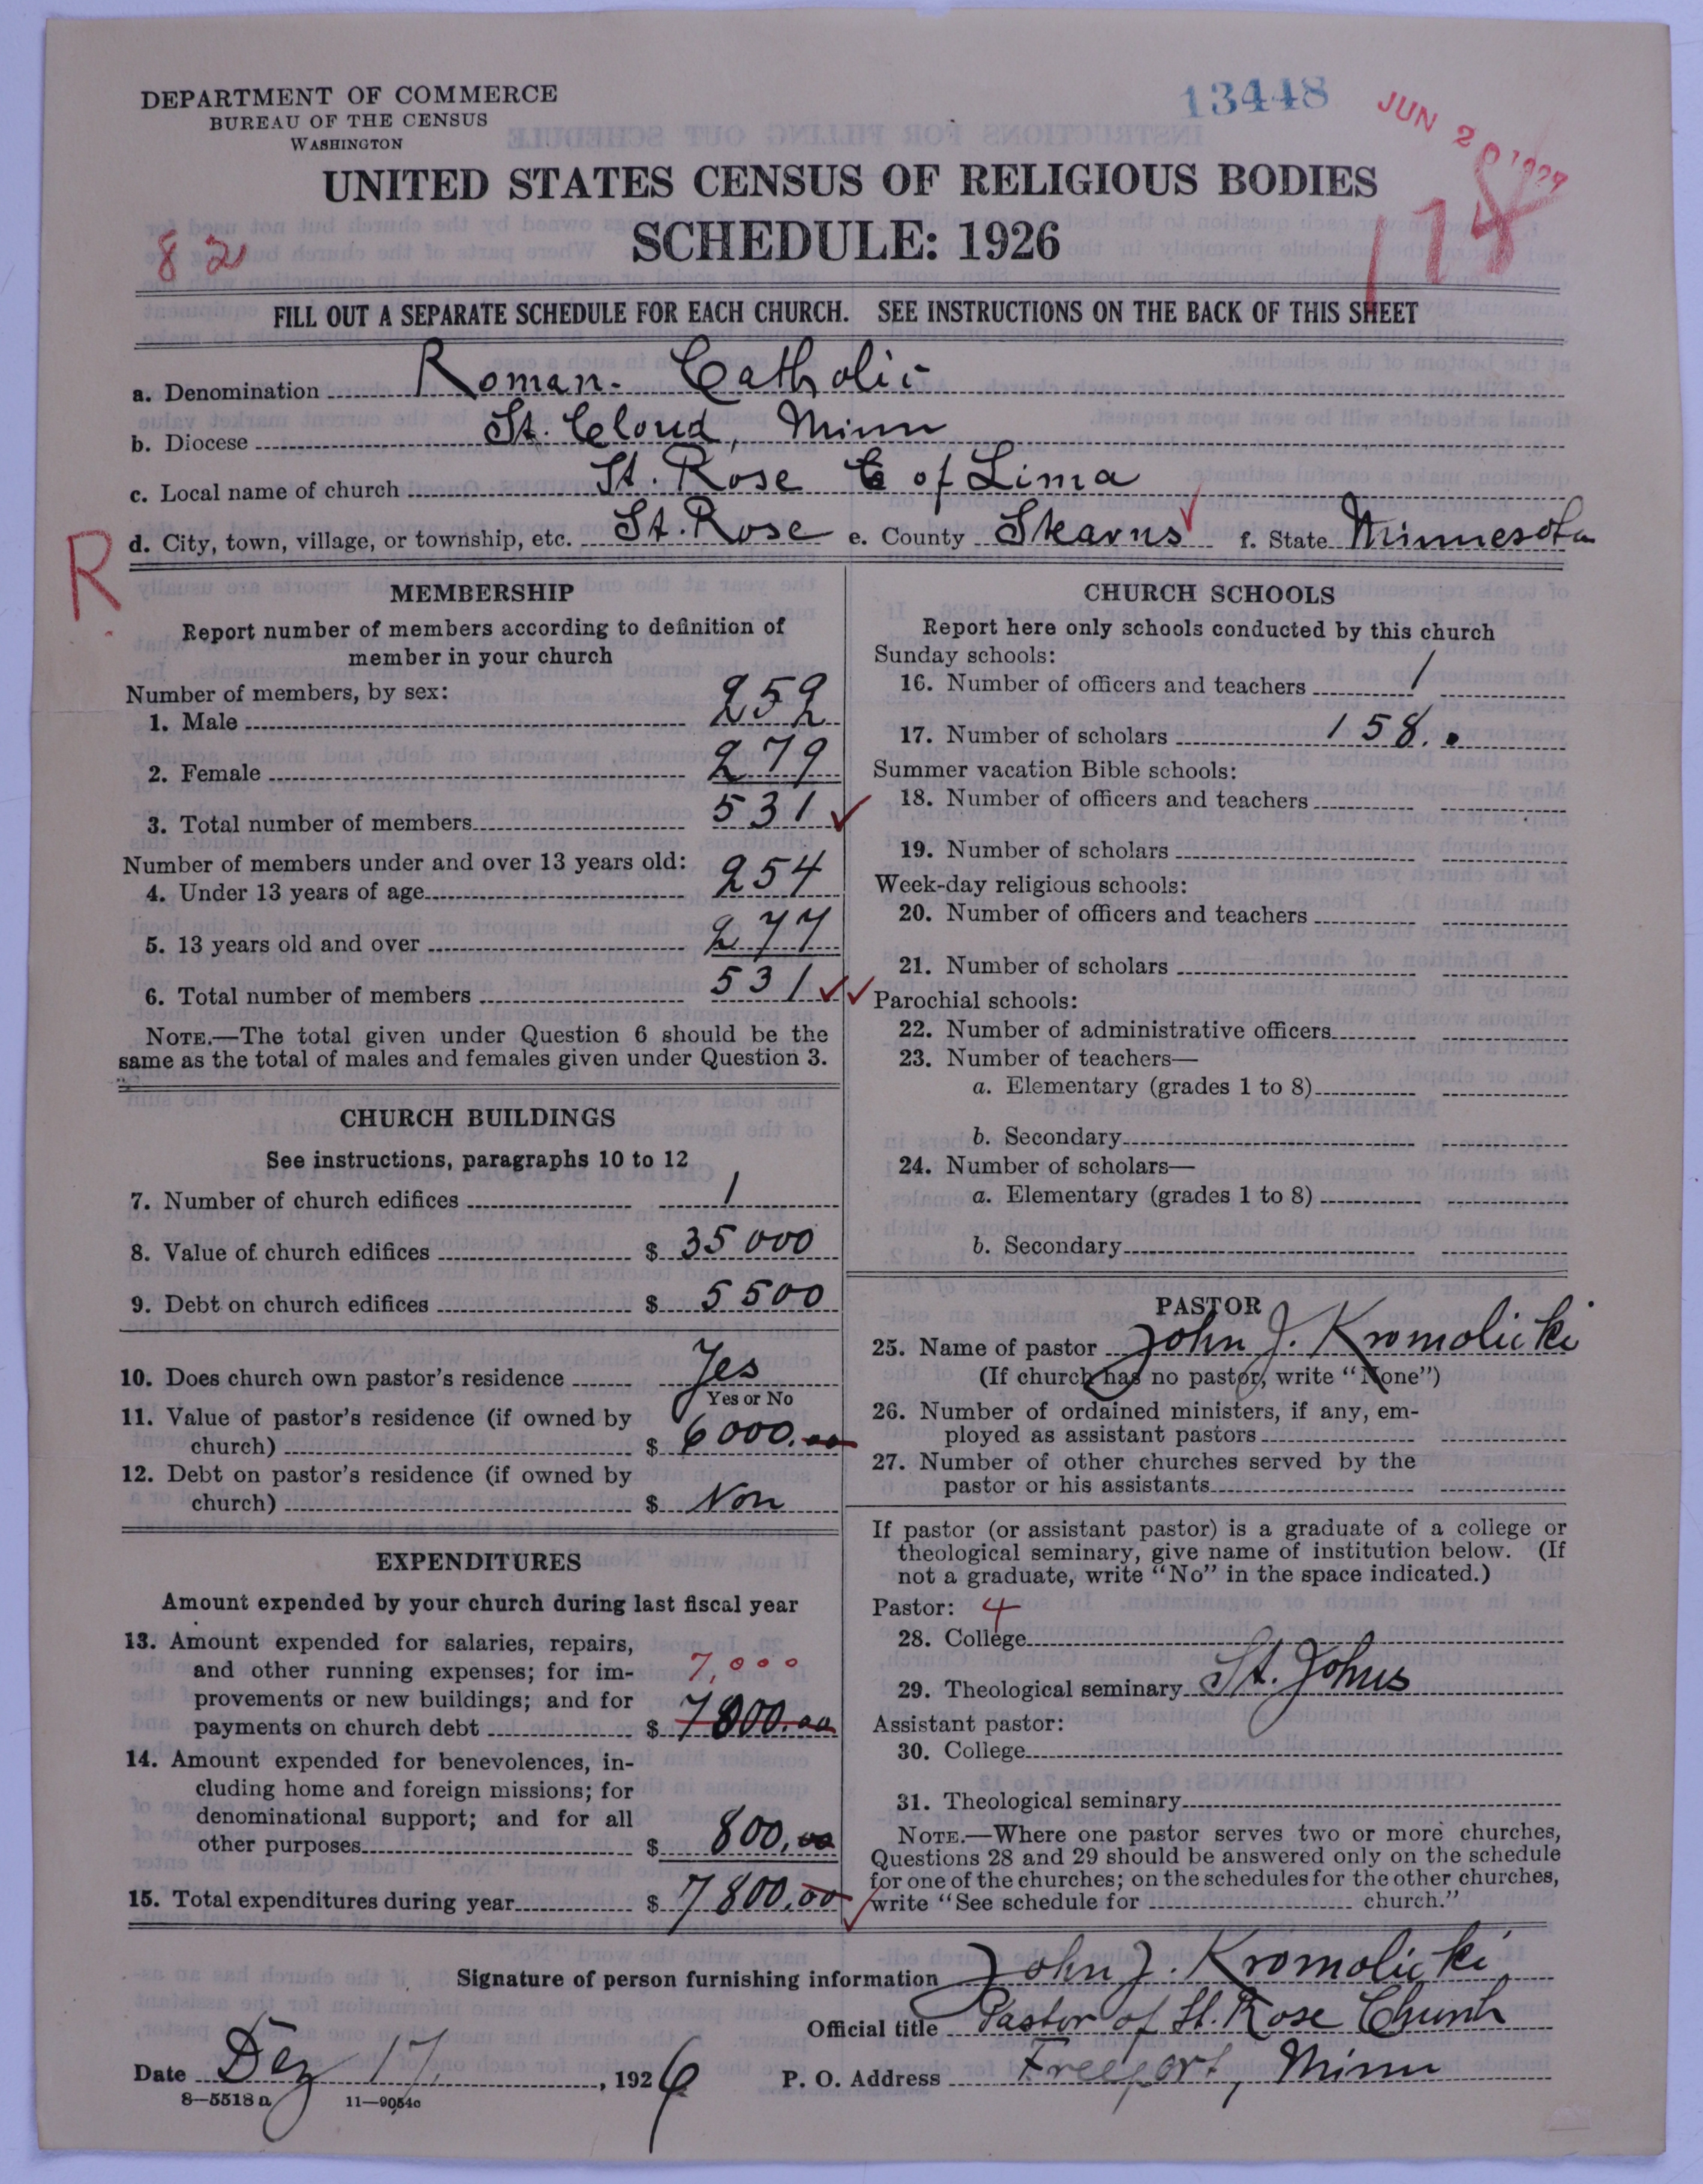 DEPARTMENT OF COMMERCE
BUREAU OF THE CENSUS
WASHINGTON
13448
JUN 20 1927
UNITED STATES CENSUS OF RELIGIOUS BODIES
SCHEDULE: 1926
82
178
FILL OUT A SEPARATE SCHEDULE FOR EACH CHURCH. SEE INSTRUCTIONS ON THE BACK OF THIS SHEET
a. Denomination Roman-Catholic
b. Diocese St. Cloud, Minn
c. Local name of church St. Rose of Lima
d. City, town, village, or township, etc. St. Rose e. County Stearns f. State Minnesota
R
MEMBERSHIP
Report number of members according to definition of
member in your church
Number of members, by sex:
1. Male 252
2. Female 279
3. Total number of members 531
Number of members under and over 13 years old:
4. Under 13 years of age 254
5. 13 years old and over 277
6. Total number of members 531
NOTE.—The total given under Question 6 should be the
same as the total of males and females given under Question 3.
CHURCH BUILDINGS
See instructions, paragraphs 10 to 12
7. Number of church edifices 1
8. Value of church edifices $ 35000
9. Debt on church edifices $ 5500
10. Does church own pastor's residence Yes
Yes or No
11. Value of pastor's residence (if owned by
church) $ 6000.00
12. Debt on pastor's residence (if owned by
church) $ Non
EXPENDITURES
Amount expended by your church during last fiscal year
13. Amount expended for salaries, repairs,
and other running expenses; for im- 7,000
provements or new buildings; and for
payments on church debt $ 7800.00
14. Amount expended for benevolences, in-
cluding home and foreign missions; for
denominational support; and for all
other purposes $ 800.00
15. Total expenditures during year $ 7800.00
CHURCH SCHOOLS
Report here only schools conducted by this church
Sunday schools:
16. Number of officers and teachers 1
17. Number of scholars 158.
Summer vacation Bible schools:
18. Number of officers and teachers
19. Number of scholars
Week-day religious schools:
20. Number of officers and teachers
21. Number of scholars
Parochial schools:
22. Number of administrative officers
23. Number of teachers—
a. Elementary (grades 1 to 8)
b. Secondary
24. Number of scholars—
a. Elementary (grades 1 to 8)
b. Secondary
PASTOR
25. Name of pastor John J. Kromolicki
(If church has no pastor, write "None")
26. Number of ordained ministers, if any, em-
ployed as assistant pastors
27. Number of other churches served by the
pastor or his assistants
If pastor (or assistant pastor) is a graduate of a college or
theological seminary, give name of institution below. (If
not a graduate, write "No" in the space indicated.)
Pastor: 4
28. College
29. Theological seminary St. Johns
Assistant pastor:
30. College
31. Theological seminary
NOTE.—Where one pastor serves two or more churches,
Questions 28 and 29 should be answered only on the schedule
for one of the churches; on the schedules for the other churches,
write "See schedule for church."
Signature of person furnishing information John J. Kromolicki
Official title Pastor of St. Rose Church
Date Dez 17, 1926 P. O. Address Freeport, Minn
8—5518 a 11—9054c